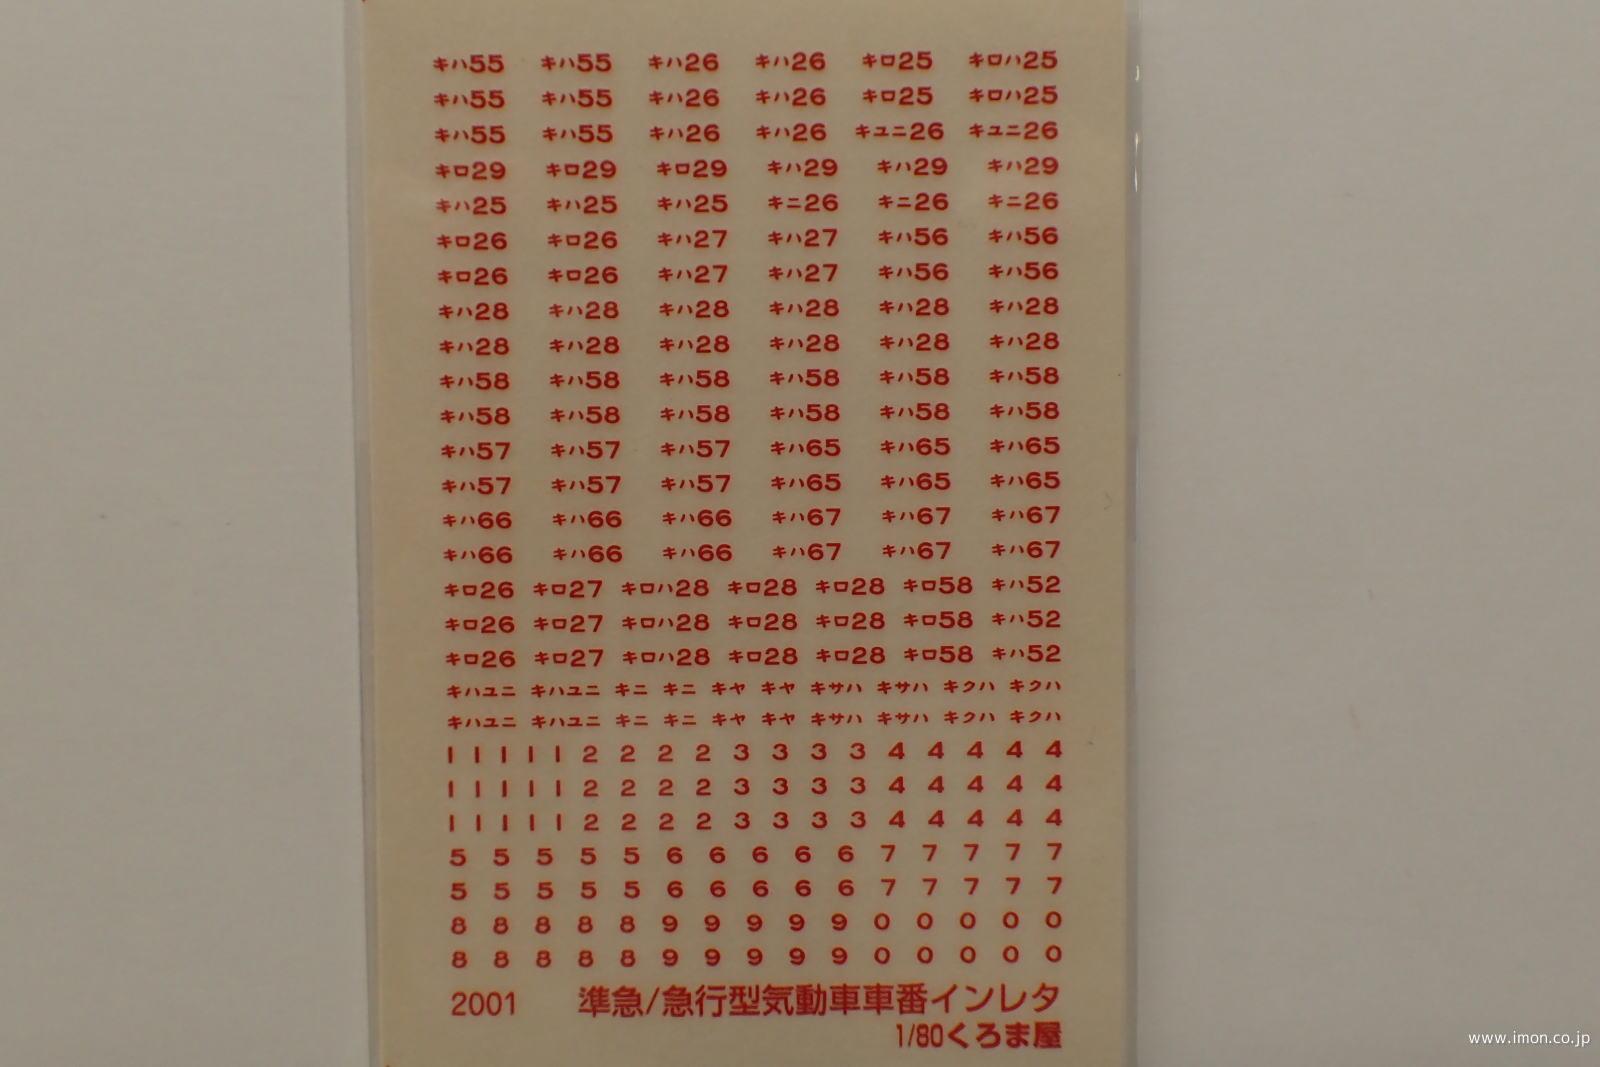 キハ55 キハ55 キハ26 キハ26 キロ25 キロハ25
キハ55 キハ55 キハ26 キハ26 キロ25 キロハ25
キハ55 キハ55 キハ26 キハ26 キユニ26 キユニ26
キロ29 キロ29 キロ29 キハ29 キハ29 キハ29
キハ25 キハ25 キハ25 キニ26 キニ26 キニ26
キロ26 キロ26 キハ27 キハ27 キハ56 キハ56
キロ26 キロ26 キハ27 キハ27 キハ56 キハ56
キハ28 キハ28 キハ28 キハ28 キハ28 キハ28
キハ28 キハ28 キハ28 キハ28 キハ28 キハ28
キハ58 キハ58 キハ58 キハ58 キハ58 キハ58
キハ58 キハ58 キハ58 キハ58 キハ58 キハ58
キハ57 キハ57 キハ57 キハ65 キハ65 キハ65
キハ57 キハ57 キハ57 キハ65 キハ65 キハ65
キハ66 キハ66 キハ66 キハ67 キハ67 キハ67
キハ66 キハ66 キハ66 キハ67 キハ67 キハ67
キロ26 キロ27 キロハ28 キロ28 キロ28 キロ58 キハ52
キロ26 キロ27 キロハ28 キロ28 キロ28 キロ58 キハ52
キロ26 キロ27 キロハ28 キロ28 キロ28 キロ58 キハ52
キハユニ キハユニ キニ キニ キヤ キヤ キサハ キサハ キクハ キクハ
キハユニ キハユニ キニ キニ キヤ キヤ キサハ キサハ キクハ キクハ
1 1 1 1 1 2 2 2 2 3 3 3 3 4 4 4 4 4
1 1 1 1 1 2 2 2 2 3 3 3 3 4 4 4 4 4
1 1 1 1 1 2 2 2 2 3 3 3 3 4 4 4 4 4
5 5 5 5 5 6 6 6 6 6 7 7 7 7 7
5 5 5 5 5 6 6 6 6 6 7 7 7 7 7
8 8 8 8 8 9 9 9 9 9 0 0 0 0 0
8 8 8 8 8 9 9 9 9 9 0 0 0 0 0
2001 準急/急行型気動車車番インレタ
1/80くろま屋
www.imon.co.jp